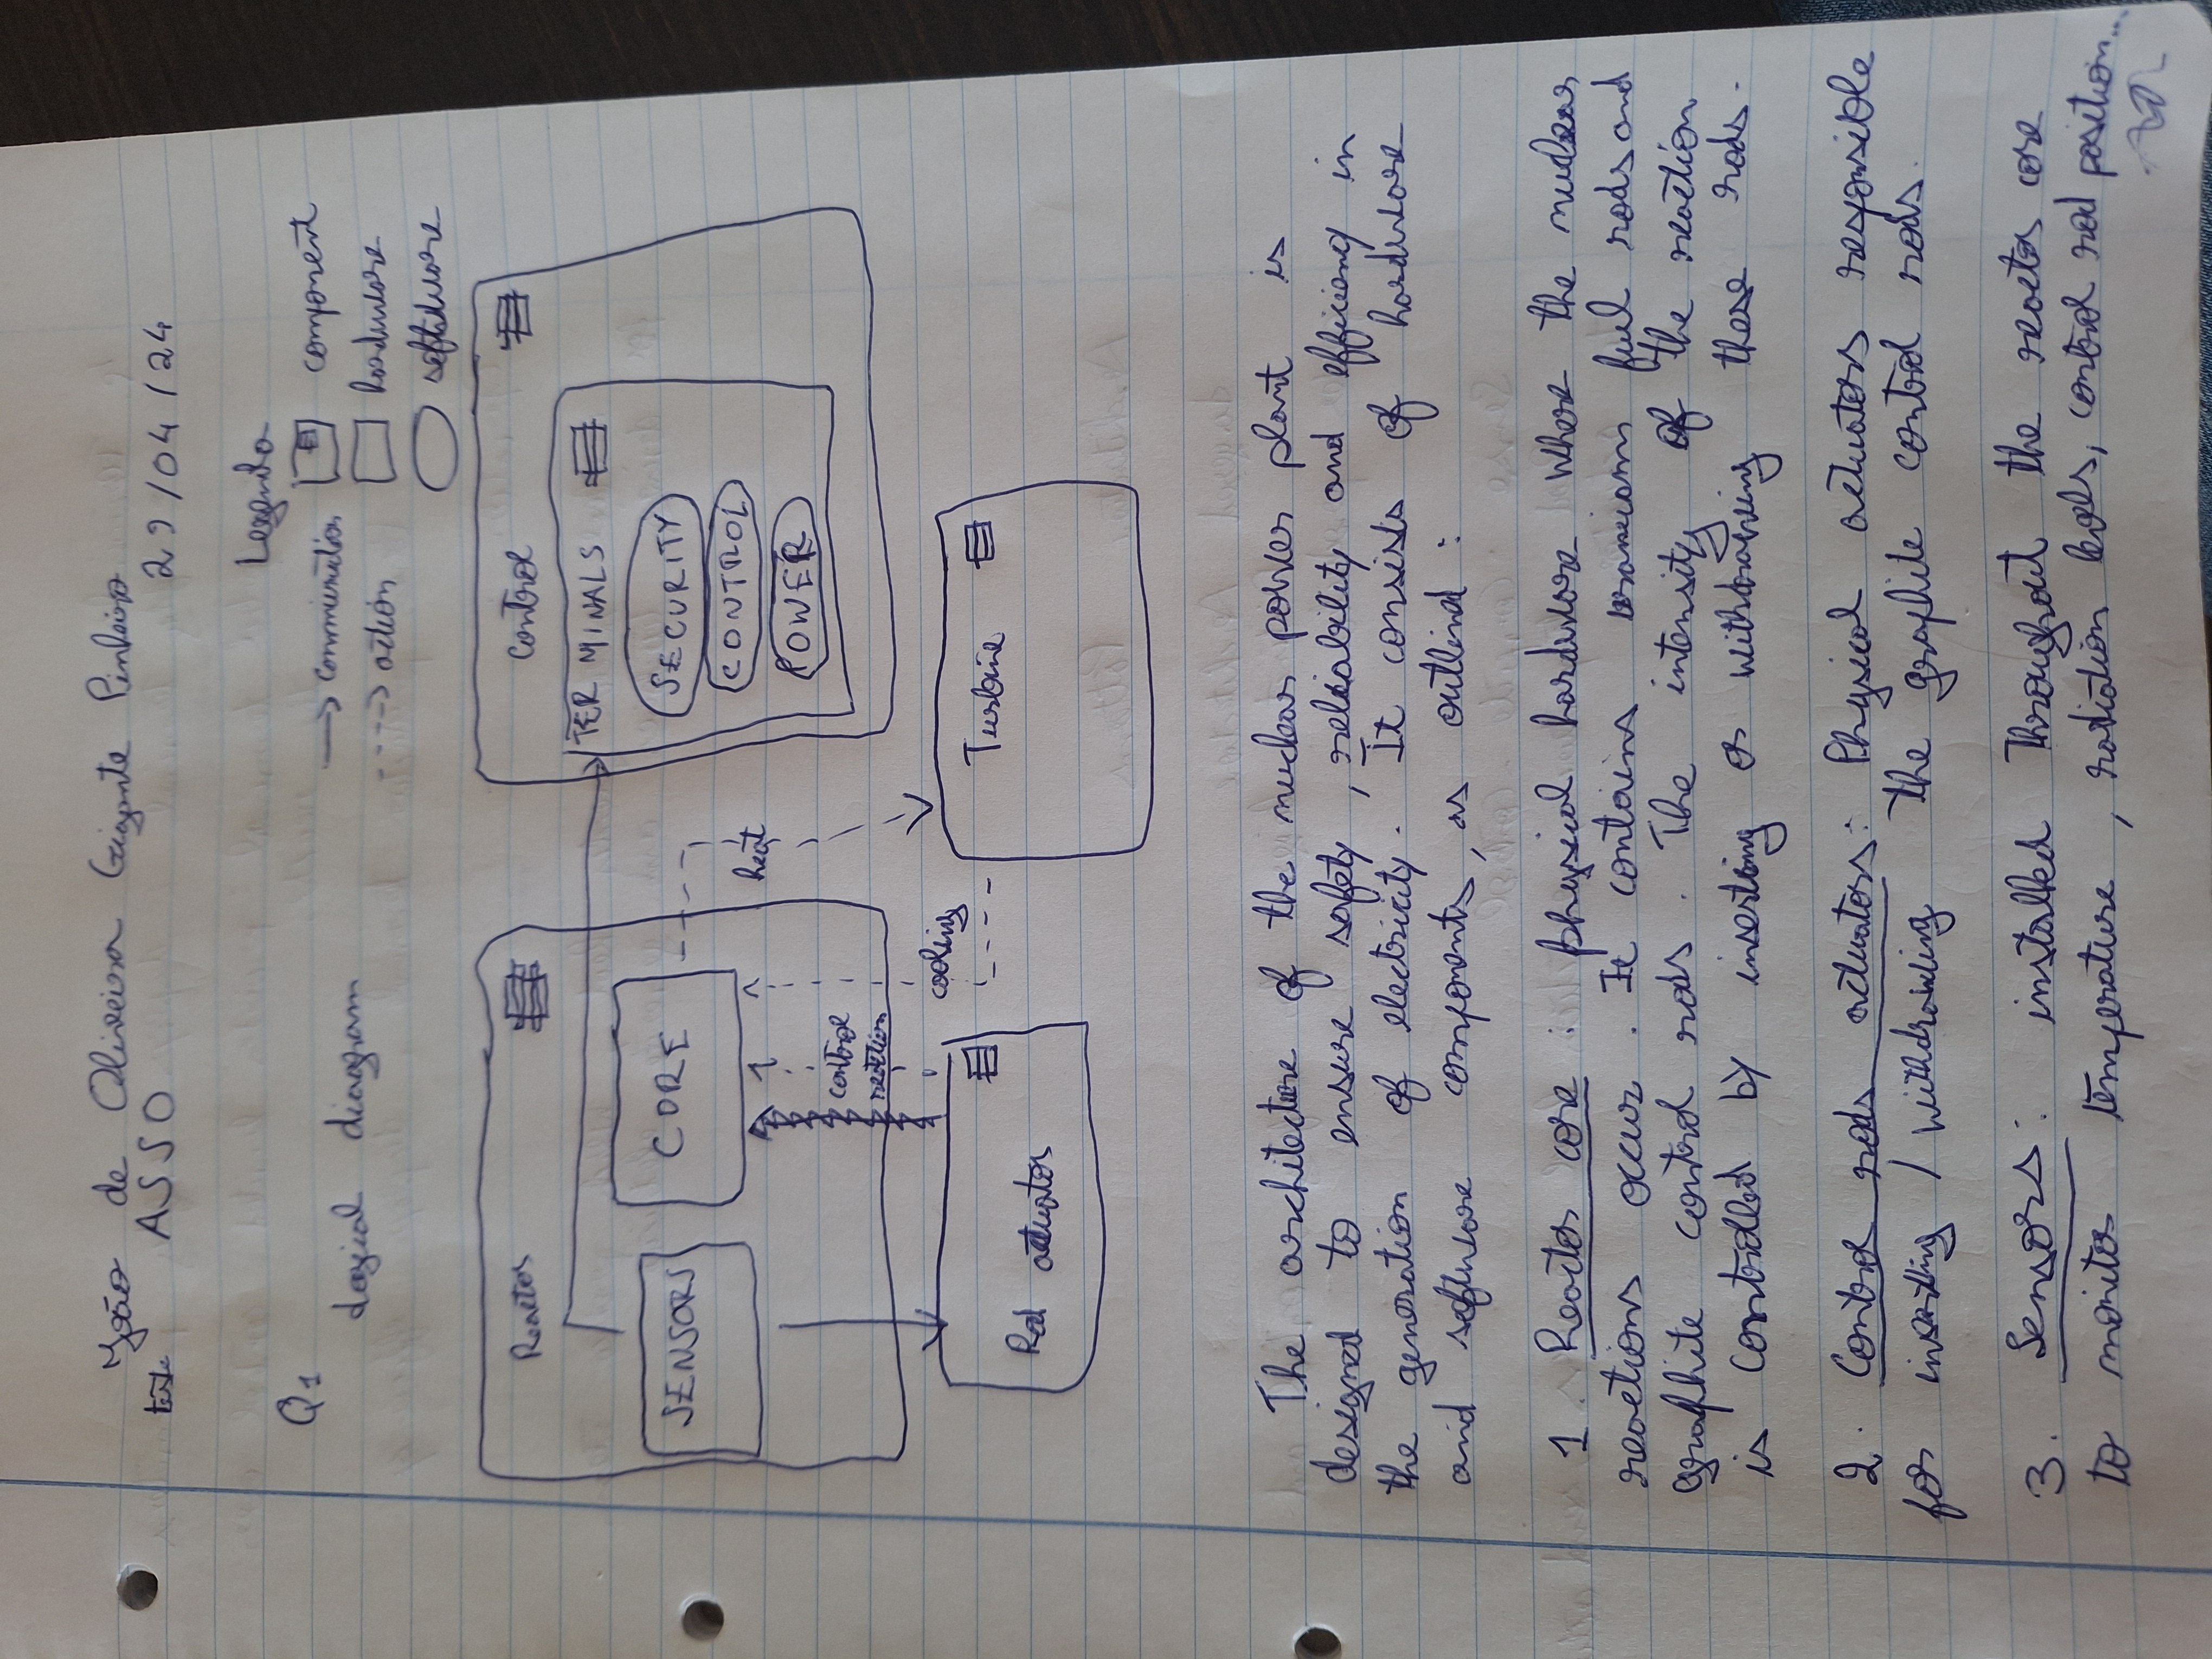 João de Oliveira Gigante Pinheiro
teste ASSO 29/04/24
Q1
logical diagram
Legenda
→ communication
component
---> action
hardware
software
Reactor
Control
SENSORS
CORE
TERMINALS
SECURITY
CONTROL
POWER
heat
control
reaction
cooling
Rod actuator
Turbine
The architecture of the nuclear power plant is
designed to ensure safety, reliability and efficiency in
the generation of electricity. It consists of hardware
and software components, as outlined:
1. Reactor core: physical hardware where the nuclear
reactions occur. It contains uranium fuel rods and
graphite control rods. The intensity of the reaction
is controlled by inserting or withdrawing these rods.
2. Control rods actuators: Physical actuators responsible
for inserting / withdrawing the graphite control rods.
3. Sensors: installed throughout the reactor core
to monitor temperature, radiation levels, control rod position...